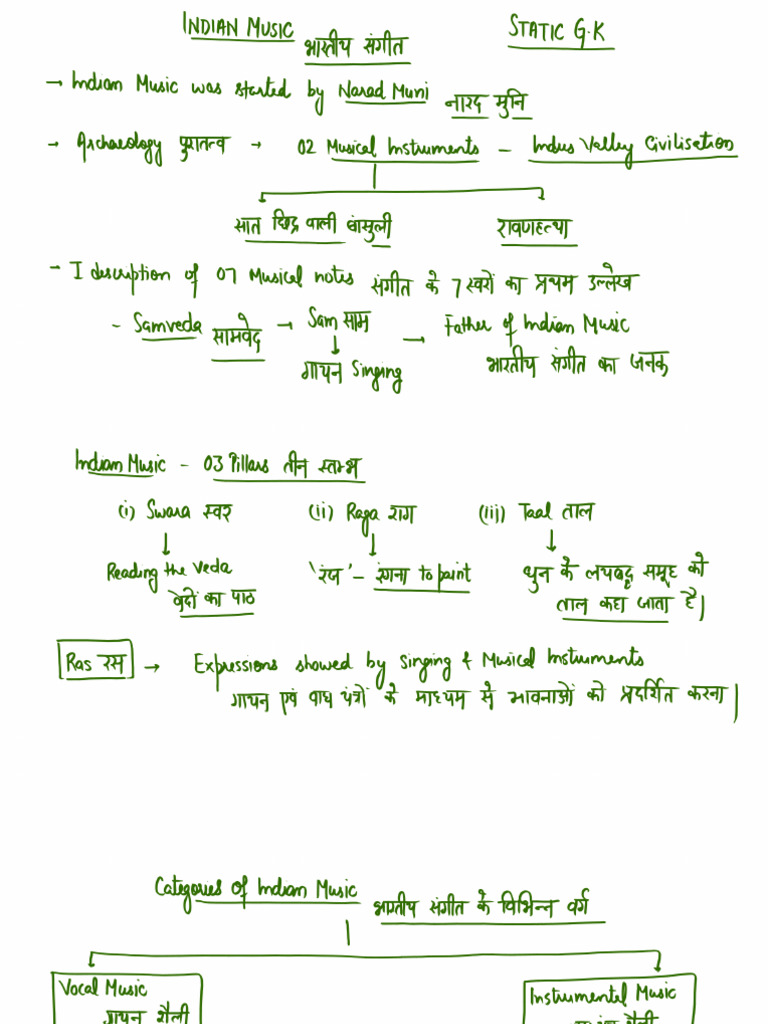 INDIAN MUSIC भारतीय संगीत STATIC G.K
→ Indian Music was started by Narad Muni नारद मुनि
→ Archaeology पुरातत्व → 02 Musical Instruments – Indus Valley Civilisation
सात छिद्र वाली बांसुली रावणहत्था
- I description of 07 Musical notes संगीत के 7 स्वरों का प्रथम उल्लेख
- Samveda सामवेद → Sam साम → Father of Indian Music
गायन Singing भारतीय संगीत का जनक
Indian Music - 03 Pillars तीन स्तम्भ
(i) Swara स्वर (ii) Raga राग (iii) Taal ताल
Reading the Veda 'रंज' - रंगना to paint धुन के लयबद्ध समूह को
वेदों का पाठ ताल कहा जाता है|
Ras रस → Expressions showed by Singing & Musical Instruments
गायन एवं वाध यंत्रों के माध्यम से भावनाओं को प्रदर्शित करना|
Categories of Indian Music भारतीय संगीत के विभिन्न वर्ग
Vocal Music Instrumental Music
गायन शैली शैली